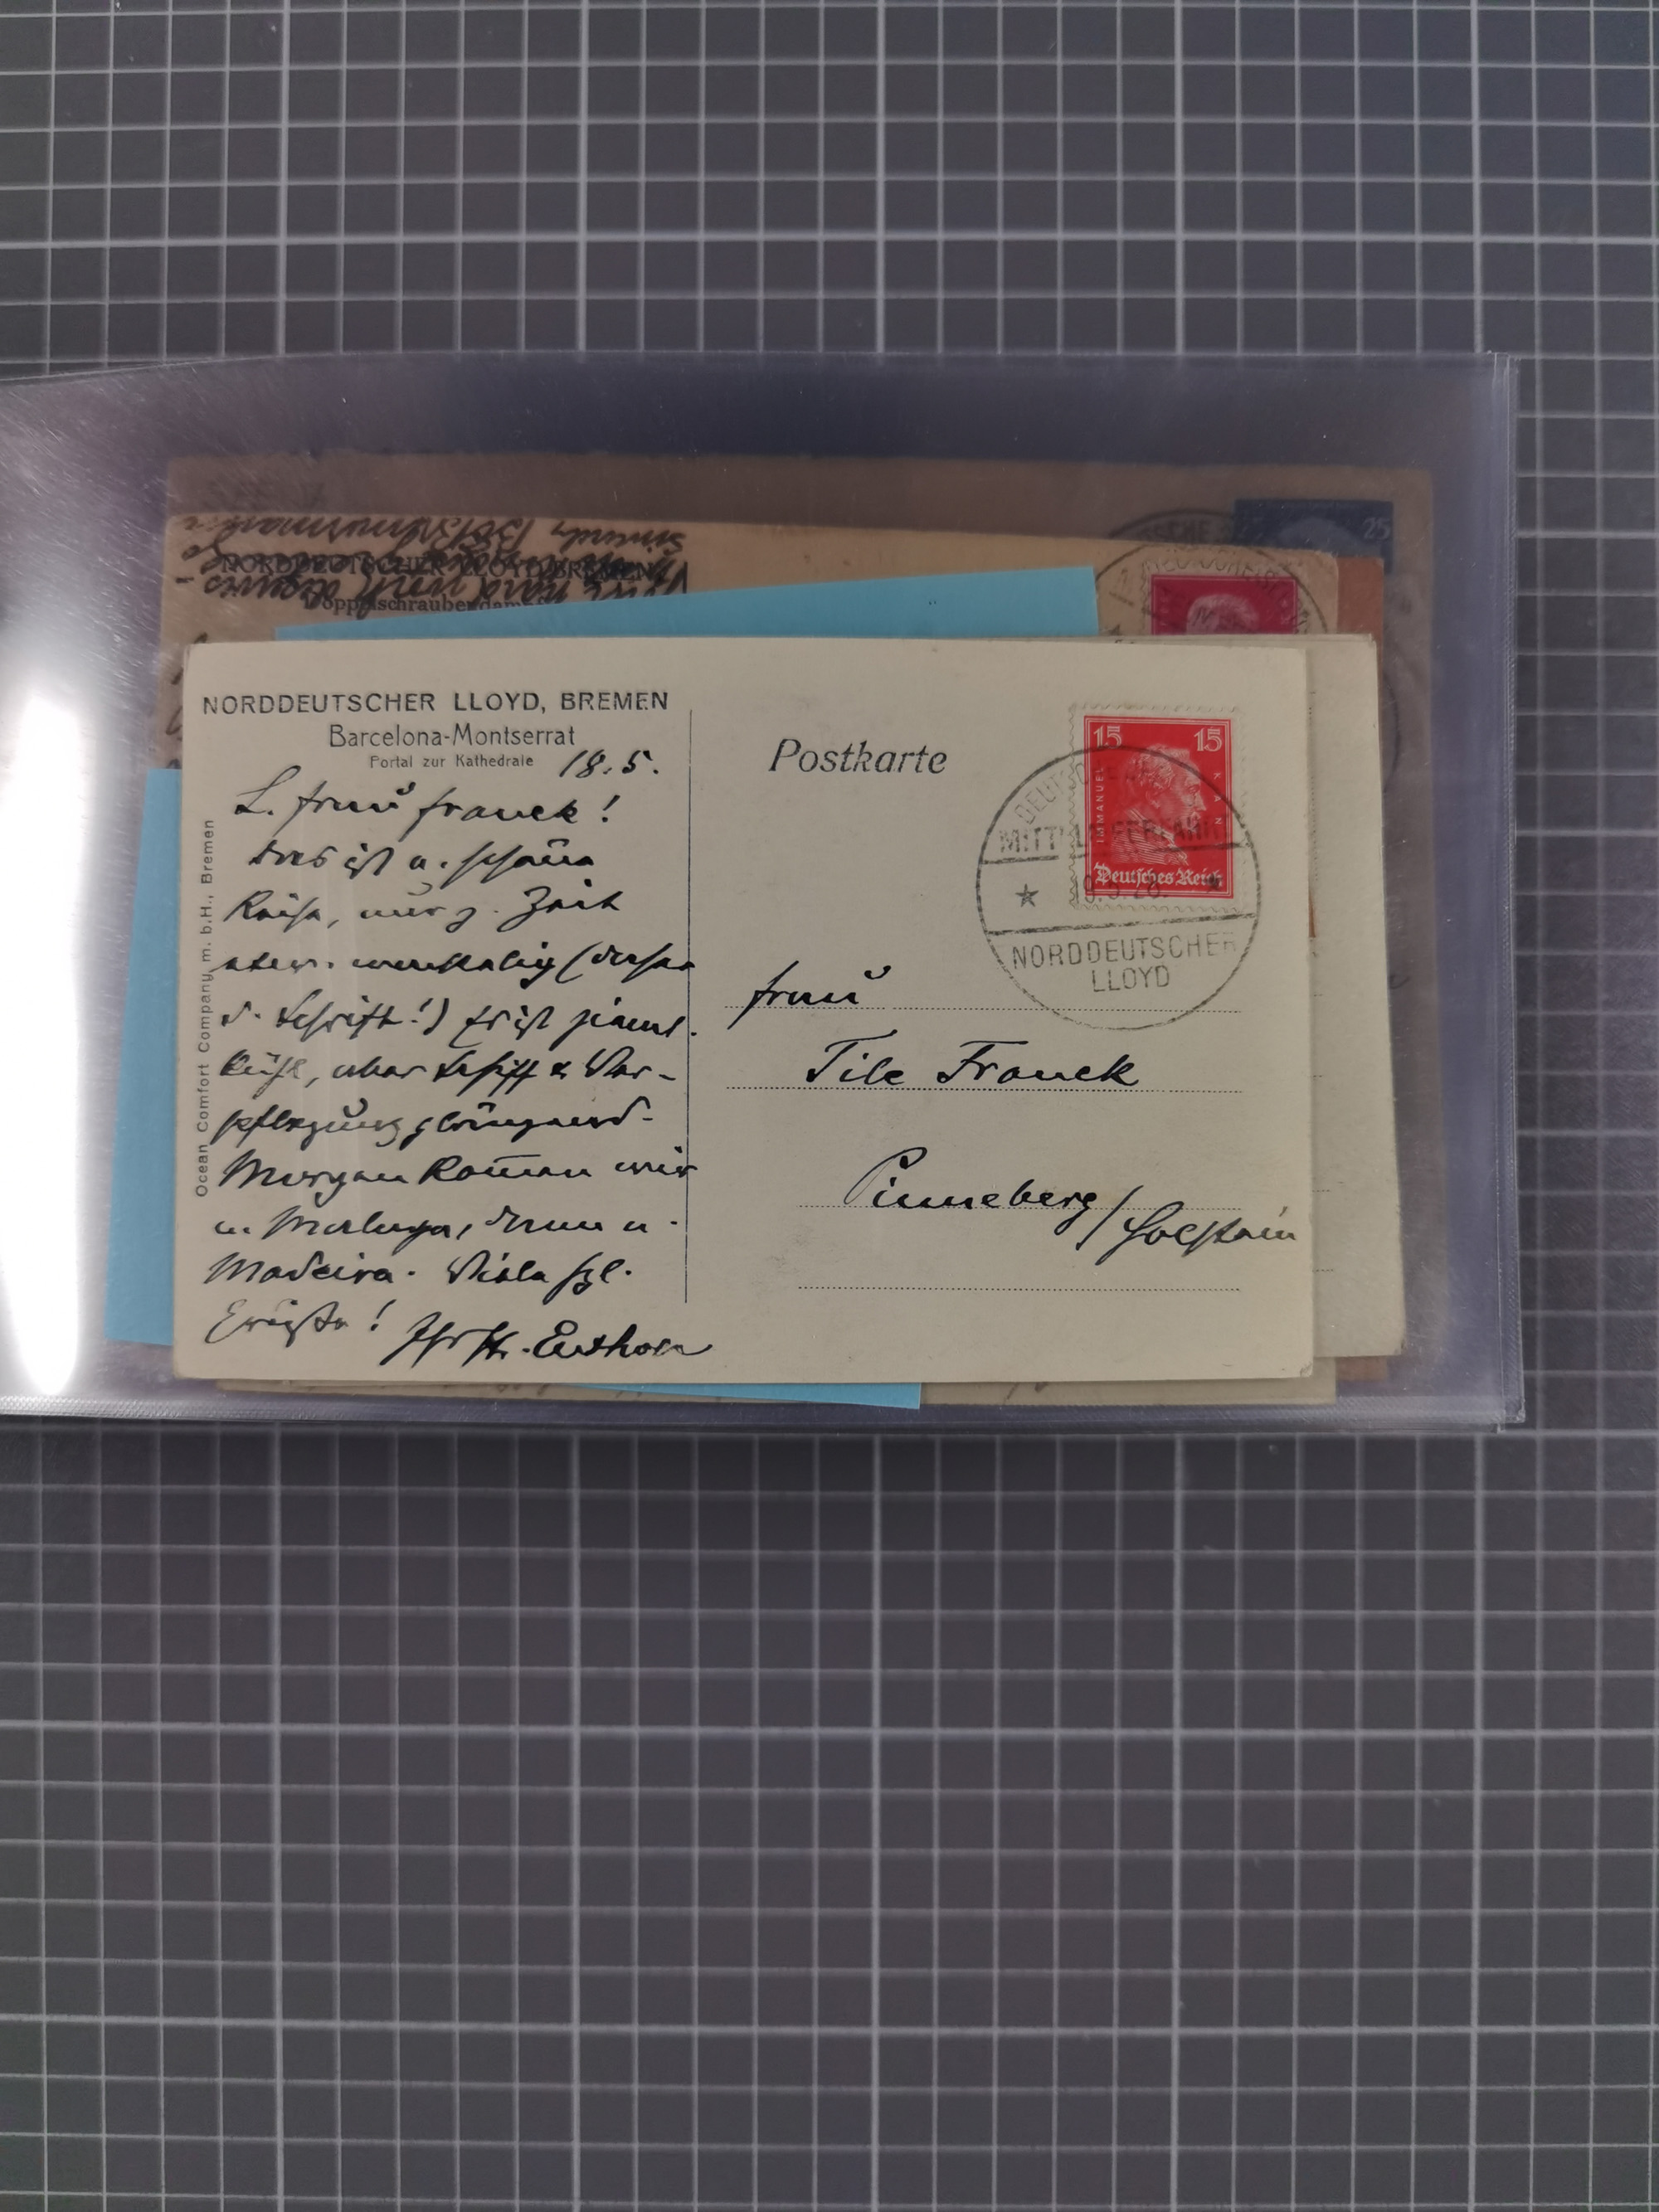 NORDDEUTSCHER LLOYD BREMEN
Doppelschraubendampf
25
NORDDEUTSCHER LLOYD, BREMEN
Barcelona-Montserrat
Portal zur Kathedrale
18.5.
L. Frau Franck!
Das ist e. schöne
Reise, nur z. Zeit
etw. wackelig (daher
d. Schrift!) Es ist zieml.
kühl, aber Schiff & Ver-
pflegung glänzend.
Morgen kom̄en wir
n. Malaga, dann n.
Madeira. Viele hzl.
Grüße! Ihr
Ocean Comfort Company, m. b. H., Bremen
Postkarte
15 15
IMMANUEL KANT
Deutsches Reich
DEUTSCHE
MITTELMEERFAHRT
NORDDEUTSCHER
LLOYD
Frau
Tile Franck
Pinneberg/Holstein